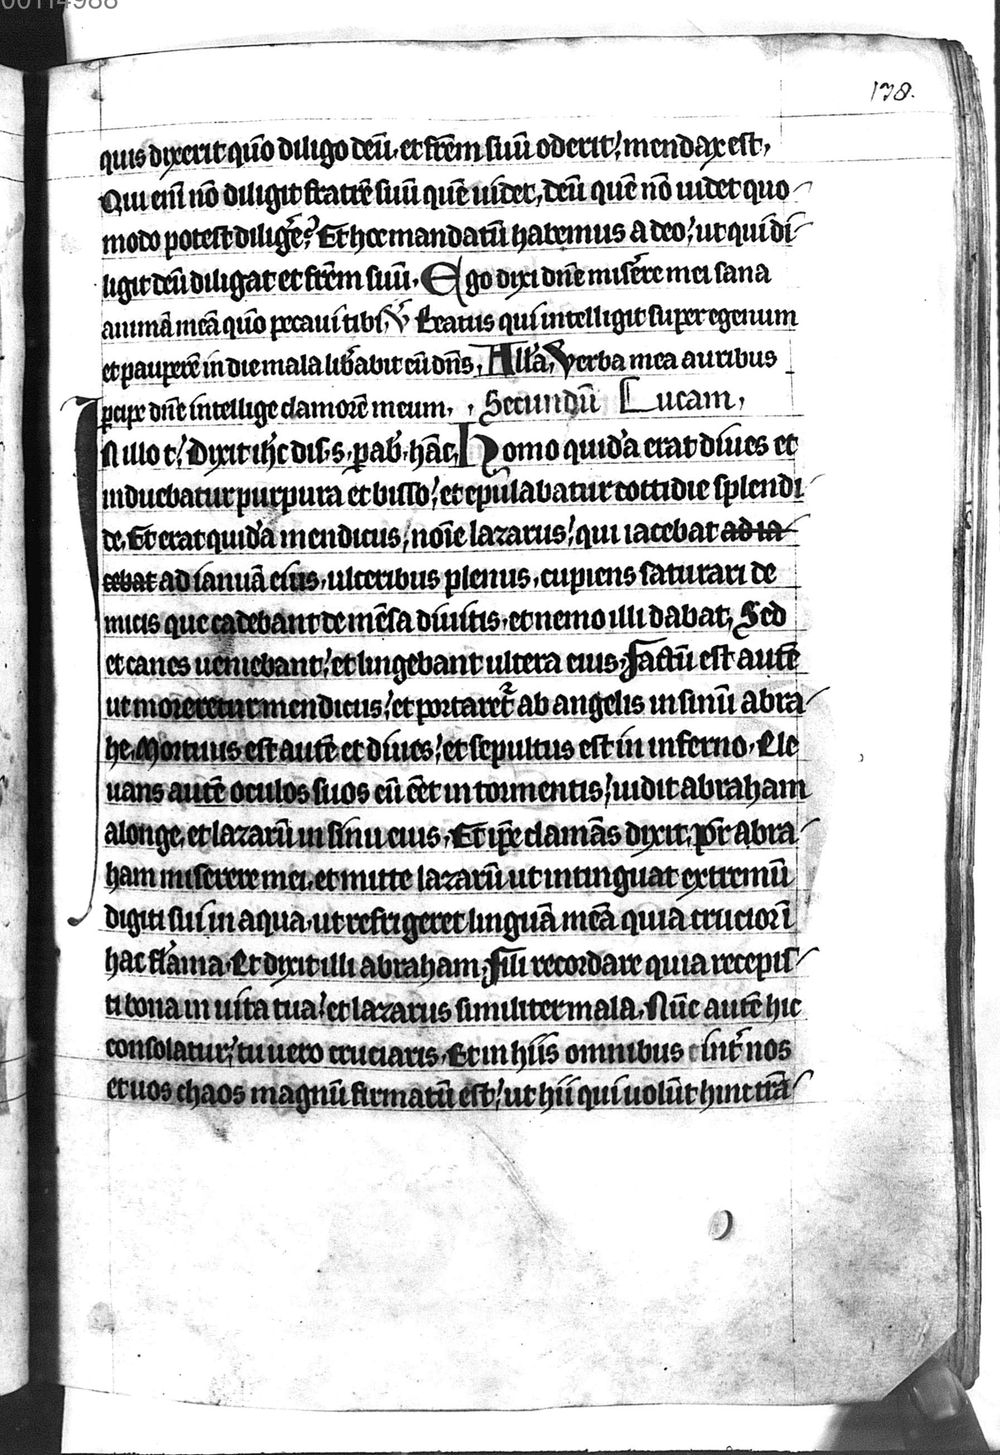 00114988
138.
quis dixerit qūo diligo deū, et frēm suū oderit, mendax est,
Qui eni nō diligit fratrē suū quē uidet, deū quē nō uidet quo-
modo potest diligē? Et hoc mandatū habemus a deo, ut qui di-
ligit deū diligat et frēm suū. Ego dixi dn̄e misere mei sana
animā meā qūo peccaui tibi, V̄ Beatus qui intelligit super egenum
et pauperē in die mala libabit eū dn̄s, Allā, Verba mea auribus
pcipe dn̄e intellige clamorē meum, Secundū Lucam,
In illo t, Dixit ih̄c dis. s. pab. hāc, Homo quidā erat diues et
induebatur purpura et bisso, et epulabatur cottidie splendi-
de, Et erat quidā mendicus, noīe lazarus, qui iacebat ad ia-
cebat ad ianuā eius, ulceribus plenus, cupiens saturari de
micis que cadebant de mēsa diuitis, et nemo illi dabat, Sed
et canes ueniebant, et lingebant ulcera eius, factū est autē
ut moreretur mendicus, et portaret ab angelis in sinū abra-
he, Mortuus est autē et diues, et sepultus est in inferno, Ele
uans autē oculos suos cū ēēt in tormentis, uidit abraham
alonge, et lazarū in sinu eius, Et ipē clamās dixit, pr̄ abra-
ham miserere mei, et mitte lazarū ut intinguat extremū
digiti sui in aqua, ut refrigeret linguā meā quia crucior ī
hac flāma, Et dixit illi abraham, fili recordare quia recepis-
ti bona in uita tua, et lazarus similiter mala, Nūc autē hic
consolatur, tu uero cruciaris, Et in hiis omnibus int nos
et uos chaos magnū firmatū est, ut hii qui uolūt hinc trā-